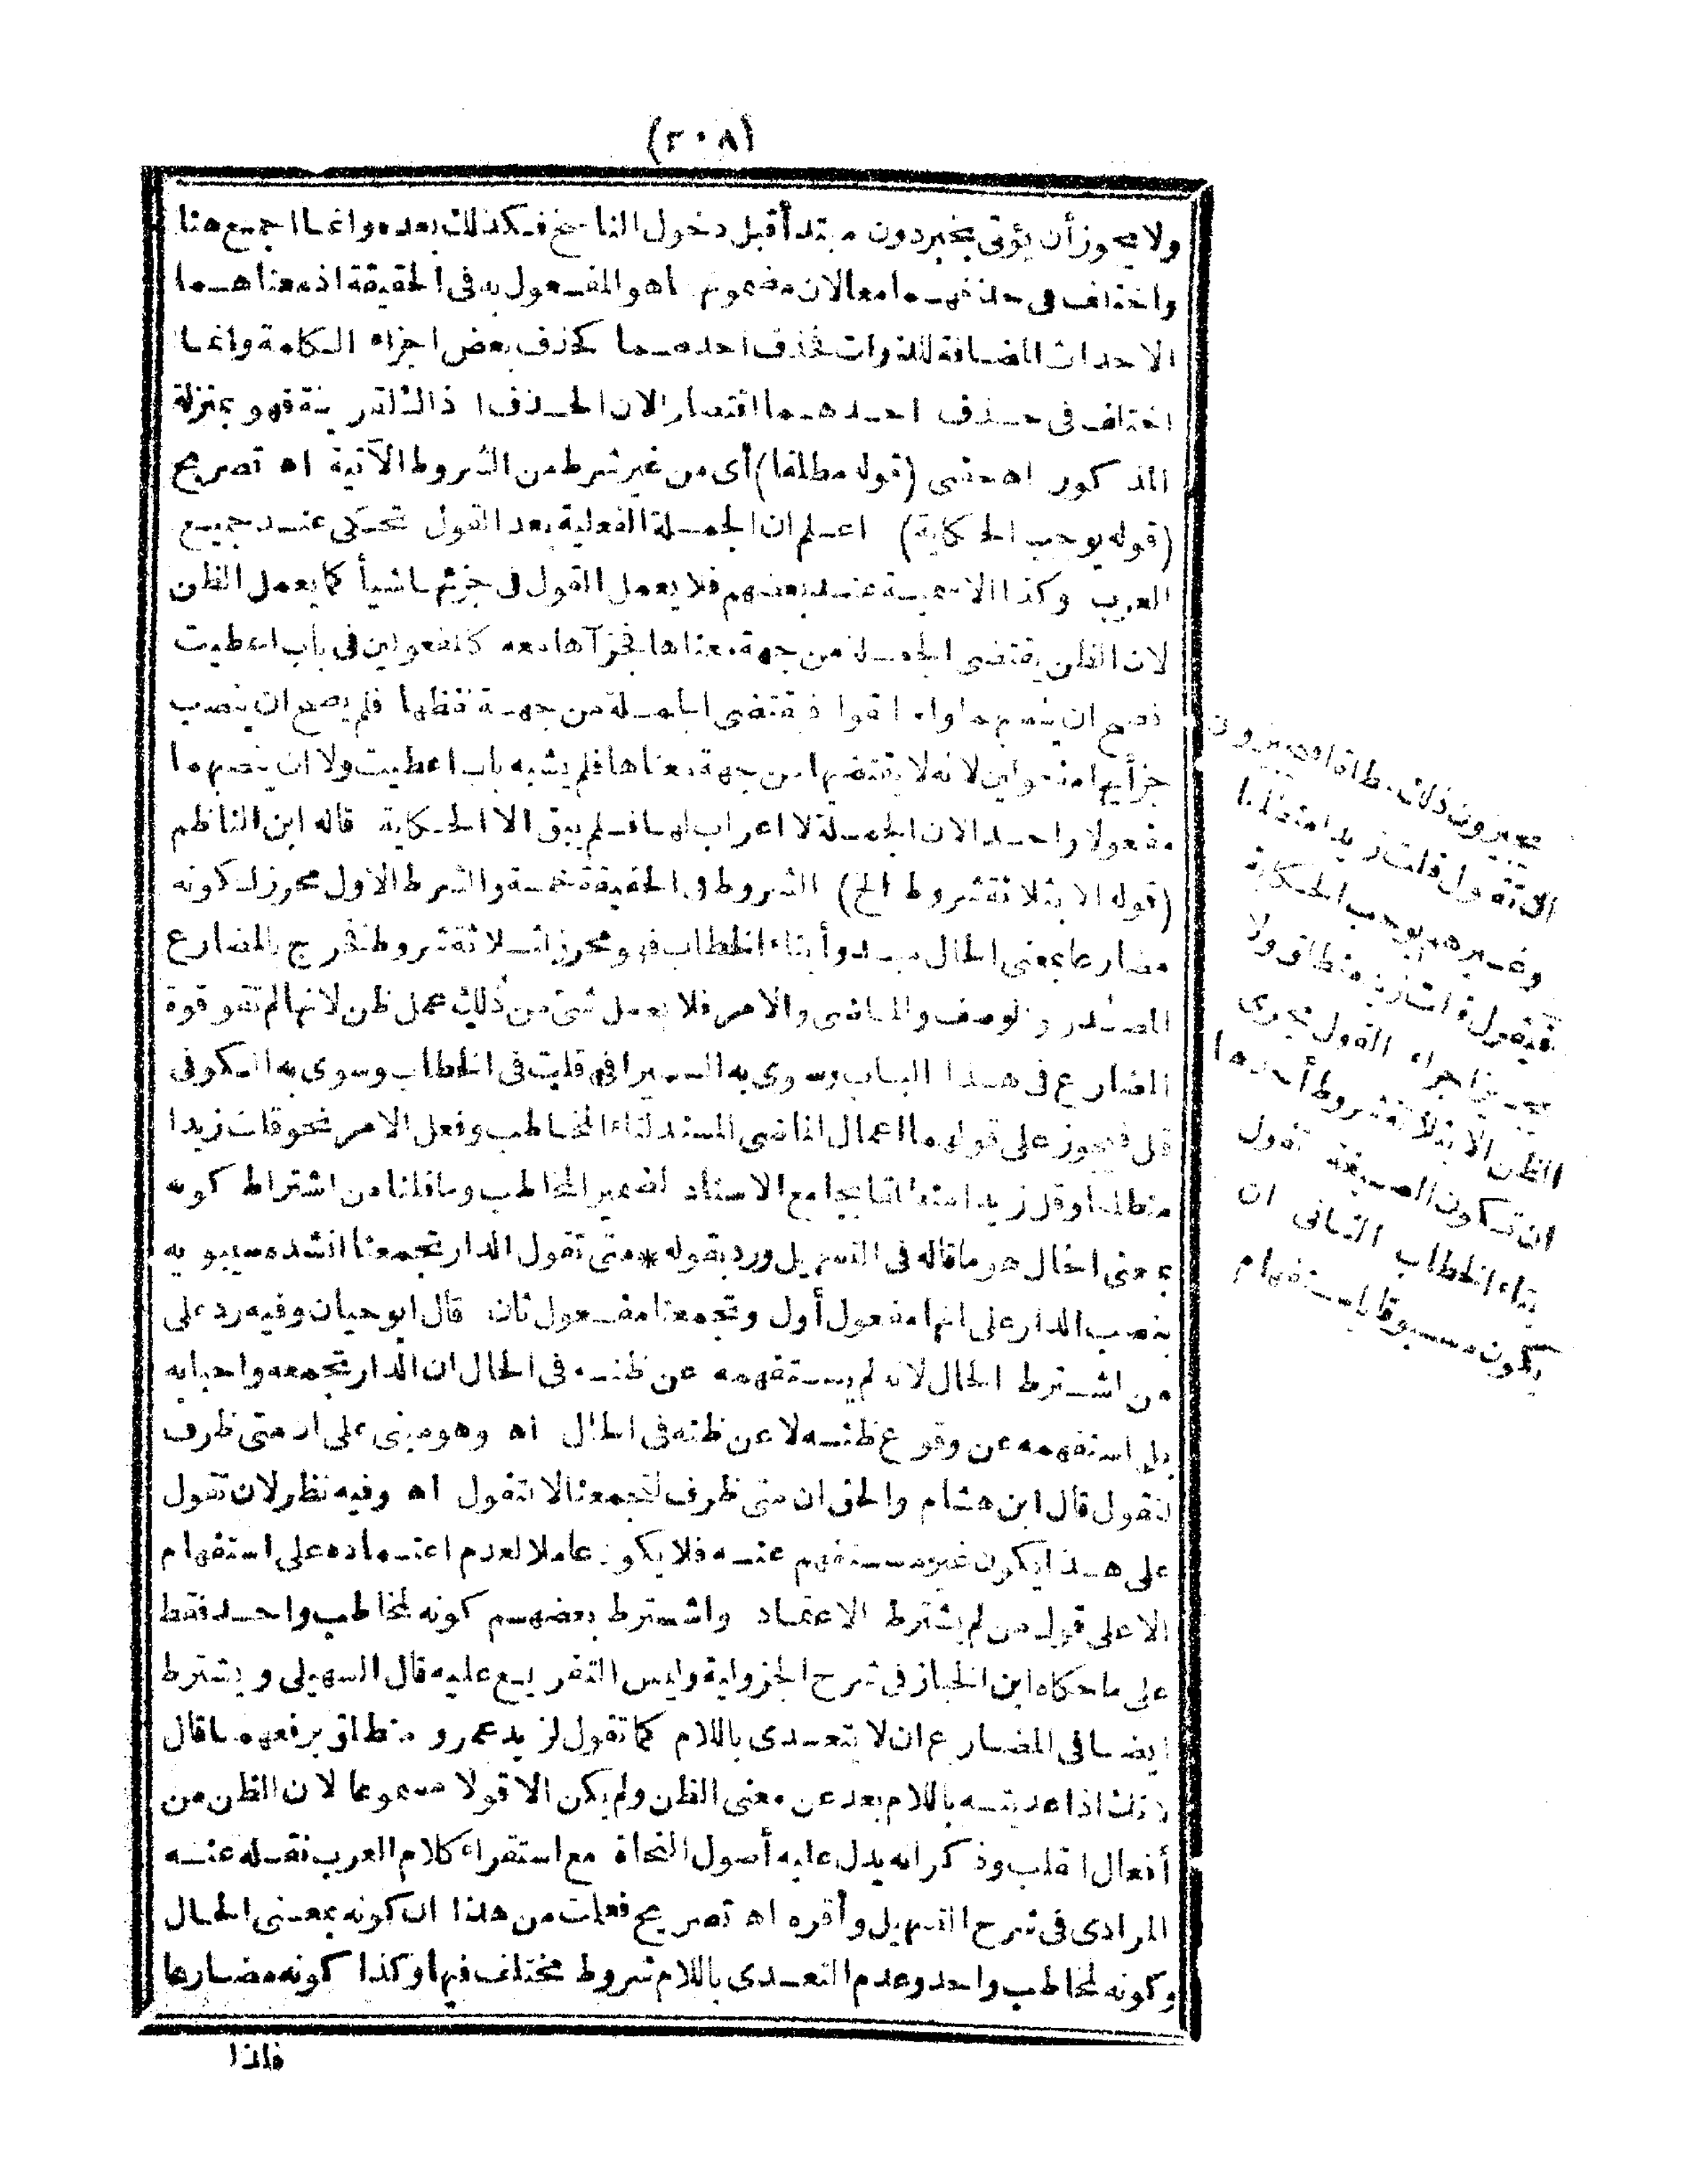 (٢٠٨)
ولا يجوز أن يؤتى بخبر دون مبتدأ قبل دخول الناسخ فكذلك بعده وانما اجمع هنا
واختلف فى حذفهما معا لان مضمونهما هو المفعول به فى الحقيقة اذ معناهما
الاحداث المضافة للذوات فحذف احدهما كحذف بعض اجزاء الكلمة وانما
اختلف فى حذف احدهما اقتصارا لان الحذف اذ ذاك لقرينة فهو بمنزلة
المذكور اه حفنى (قوله مطلقا) أى من غير شرط من الشروط الآتية اه تصريح
(قوله يوجب الحكاية) اعلم ان الجملة الفعلية بعد القول تحكى عند جميع
العرب وكذا الاسمية عند بعضهم فلا يعمل القول فى جزئيها شيأ كما يعمل الظن
لان الظن يقتضى الجملة من جهة معناها فجزآها معه كالمفعولين فى باب اعطيت
فصح ان ينصبهما وأما القول فيقتضى الجملة من جهة لفظها فلم يصح ان ينصب
جزأيها مفعولين لانه لا يقتضيها من جهة معناها فلم يشبه باب اعطيت ولا ان ينصبهما
مفعولا واحدا لان الجملة لا اعراب لها فلم يبق الا الحكاية قاله ابن الناظم
(قوله الا بثلاثة شروط الخ) الشروط فى الحقيقة خمسة والشرط الاول محرز لكونه
مضارعا بمعنى الحال مبدوأ بتاء الخطاب فهو محرز لثلاثة شروط فخرج بالمضارع
المصدر والوصف والماضى والامر فلا يعمل شئ من ذلك عمل ظن لانها لم تقو قوة
المضارع فى هذا الباب وسوى به السيرافى قلت فى الخطاب وسوى به الكوفى
قل فيجوز على قولهما اعمال الماضى المسند لتاء المخاطب وفعل الامر نحو قلت زيدا
منطلقا وقل زيدا منطلقا بجامع الاسناد لضمير المخاطب وما قلنا من اشتراط كونه
بمعنى الحال هو ما قاله فى التسهيل ورد بقوله * متى تقول الدار تجمعنا انشده سيبويه
بنصب الدار على انها مفعول أول وتجمعنا مفعول ثان قال ابو حيان وفيه رد على
من اشترط الحال لانه لم يستفهمه عن ظنه فى الحال ان الدار تجمعه واحبابه
بل استفهمه عن وقوع ظنه لا عن ظنه فى الحال اه وهو مبنى على ان متى ظرف
لتقول قال ابن هشام والحق ان متى ظرف لتجمعنا لا لتقول اه وفيه نظر لان تقول
على هذا يكون غير مستفهم عنه فلا يكون عاملا لعدم اعتماده على استفهام
الا على قول من لم يشترط الاعتماد واشترط بعضهم كونه لمخاطب واحد فقط
على ما حكاه ابن الخباز فى شرح الجزولية وليس التفريع عليه قال السهيلى ويشترط
ايضا فى المضارع ان لا يتعدى باللام كما تقول لزيد عمرو منطلق برفعهما قال
لانك اذا عديته باللام بعد عن معنى الظن ولم يكن الا قولا مسموعا لان الظن من
أفعال القلب وذكر انه يدل عليه أصول النحاة مع استقراء كلام العرب نقله عنه
المرادى فى شرح التسهيل وأقره اه تصريح فعلمت من هذا ان كونه بمعنى الحال
وكونه لمخاطب واحد وعدم التعدى باللام شروط مختلف فيها وكذا كونه مضارعا
فاذا
يجيزون ذلك مطلقا فيجيزون
ان تقول قلت زيدا منطلقا
وغيرهم يوجب الحكاية
فيقول قلت زيد منطلق ولا
يجيز اجراء القول مجرى
الظن الا بثلاثة شروط أحدها
ان تكون الصيغة تقول
بتاء الخطاب الثانى ان
يكون مسبوقا باستفهام